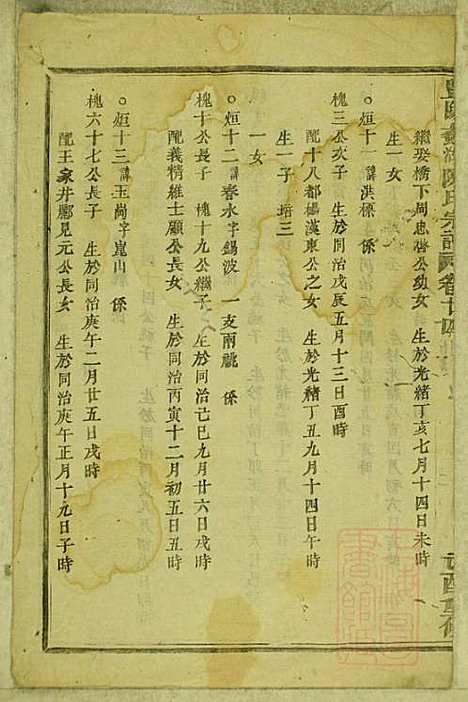 陳氏宗譜 卷廿四
繼娶橋下周忠啓公幼女 生於光緒丁亥七月十四日未時
生一女
○烜十一 諱洪 條 係
槐三公次子 生於同治戊辰五月十三日酉時
配十八都楊漢東公之女 生於光緒丁丑九月十四日
生一子 培三
一女
○烜十二 諱春水字錫波 一支兩祧 係
槐十公長子 槐十九公繼子 生於同治己巳九月廿六日戌時
配義精維士顧公長女 生於同治丙寅十二月初五日丑時
○烜十三 諱玉崗字崑山 係
槐六十七公長子 生於同治庚午二月廿五日戌時
配王家井酈見元公長女 生於同治庚午正月十九日子時